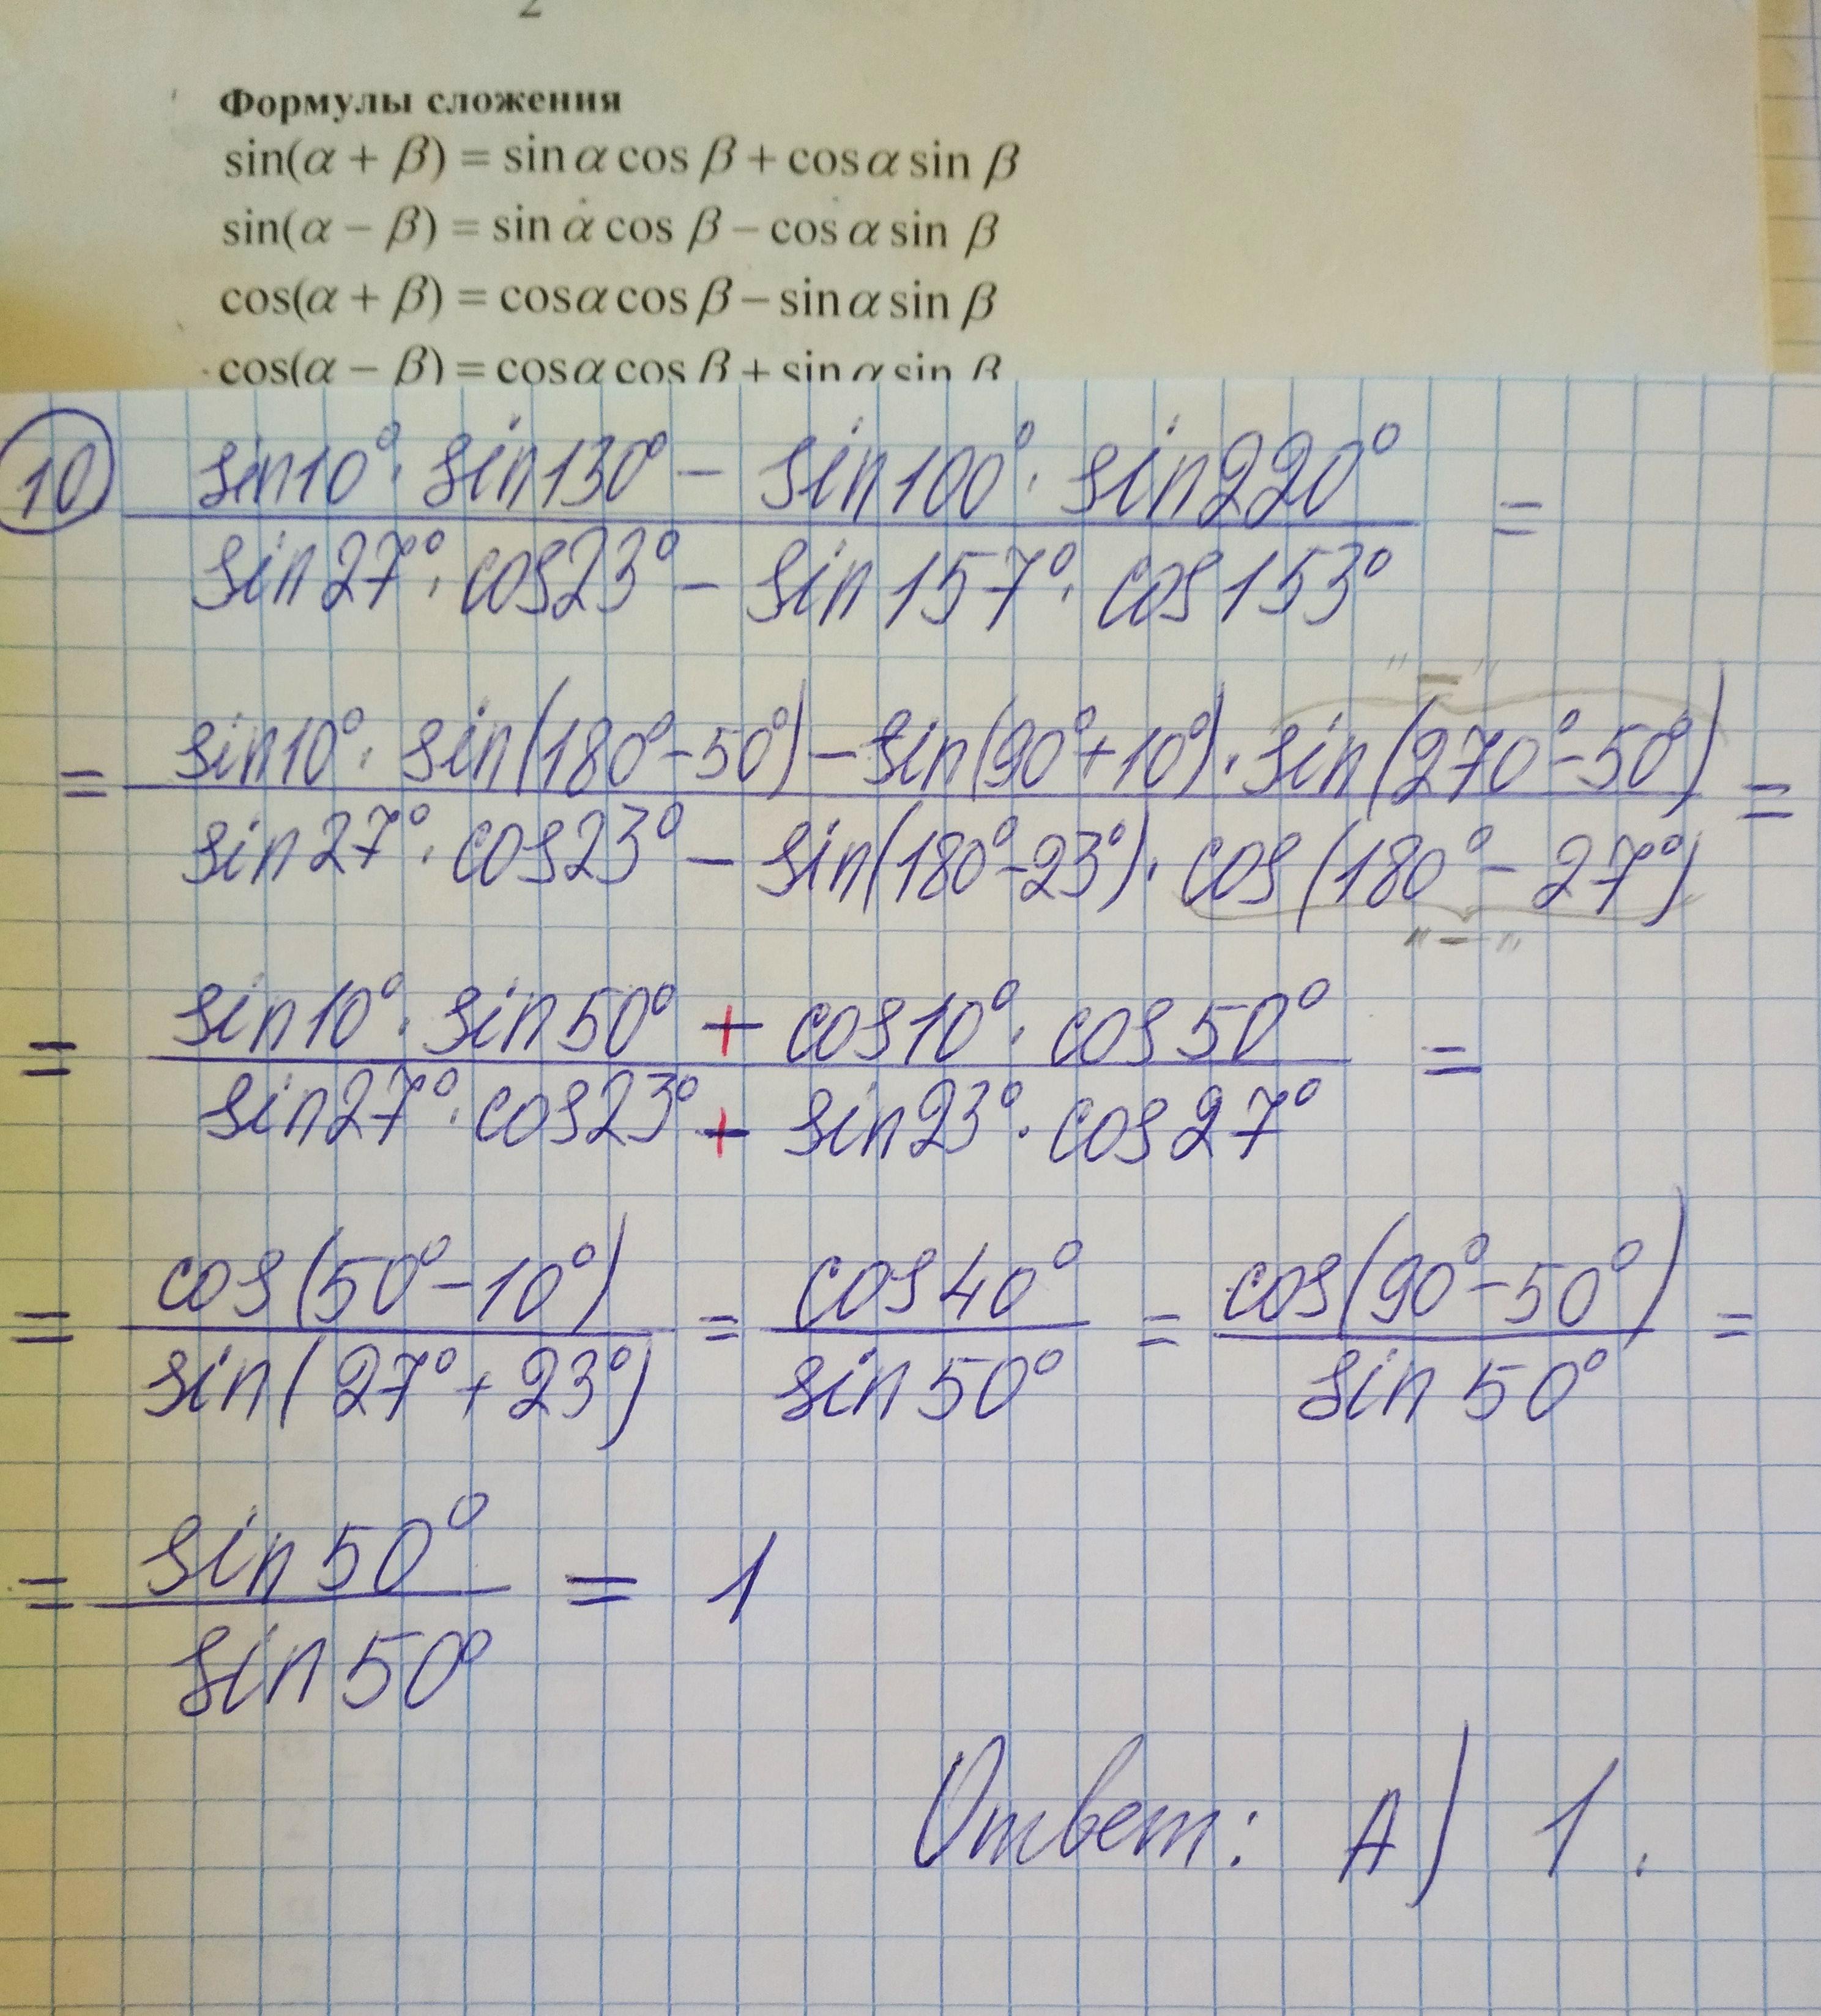 2
Формулы сложения
sin(α + β) = sin α cos β + cos α sin β
sin(α − β) = sin α cos β − cos α sin β
cos(α + β) = cos α cos β − sin α sin β
cos(α − β) = cos α cos β + sin α sin β
10 sin10°·sin130° − sin100°·sin220° =
sin27°·cos23° − sin157°·cos153°
"−"
= sin10°·sin(180°−50°)−sin(90°+10°)·sin(270°−50°) =
sin27°·cos23° − sin(180°−23°)·cos(180°−27°)
"−"
= sin10°·sin50° + cos10°·cos50° =
sin27°·cos23° + sin23°·cos27°
= cos(50°−10°) = cos40° = cos(90°−50°) =
sin(27°+23°) sin50° sin50°
= sin50° = 1
sin50°
Ответ: А) 1.